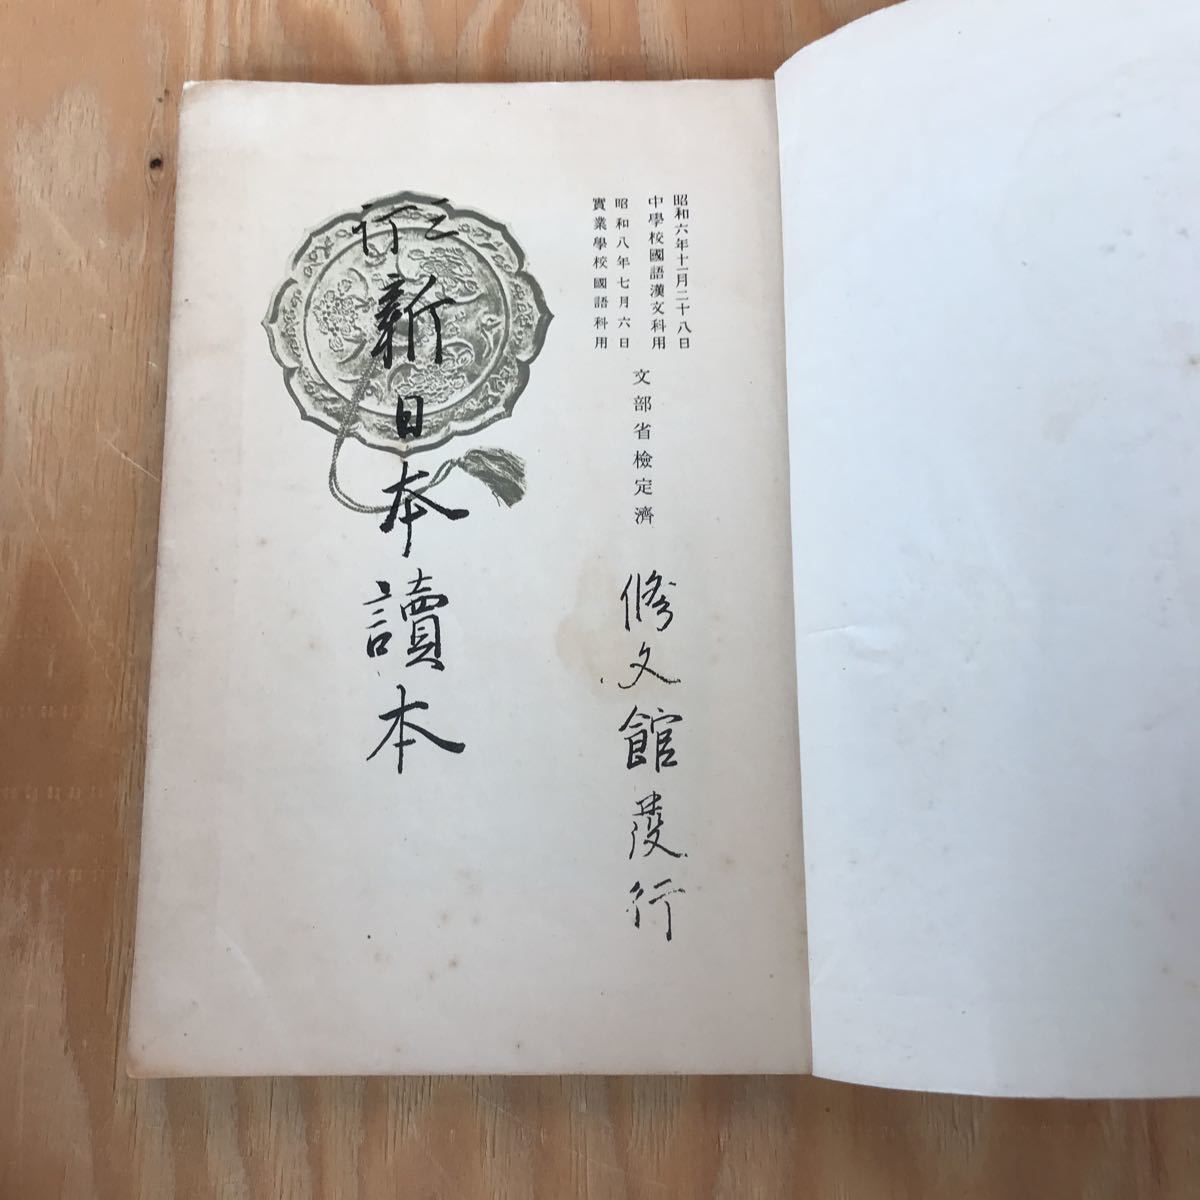 昭和六年十一月二十八日
中學校國語漢文科用
昭和八年七月六日
實業學校國語科用
文部省檢定濟
修文館發行
新日本讀本